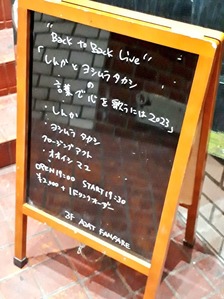 "Back to Back Live"
「しんかとヨシムラタカシ
の
言葉で心を歌うには2023」
・しんか
・ヨシムラタカシ
クロージングアクト
・オオイシマユ
OPEN19:00 START19:30
¥2,000+1ドリンクオーダー
2F ADAT FANFARE